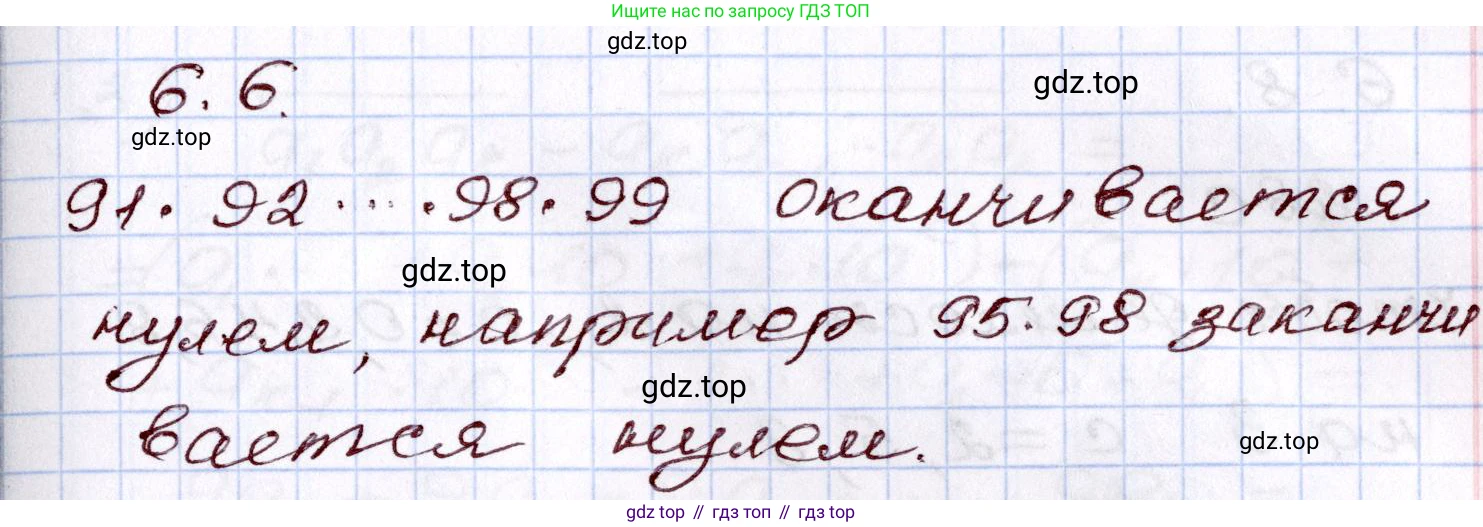 Ищите нас по запросу ГДЗ ТОП
gdz.top
6.6.
gdz.top
gdz.top
91· 92· ... ·98· 99 оканчивается
gdz.top
нулем, например 95·98 заканчи
gdz.top
вается нулем.
gdz.top
gdz.top // гдз топ // gdz.top